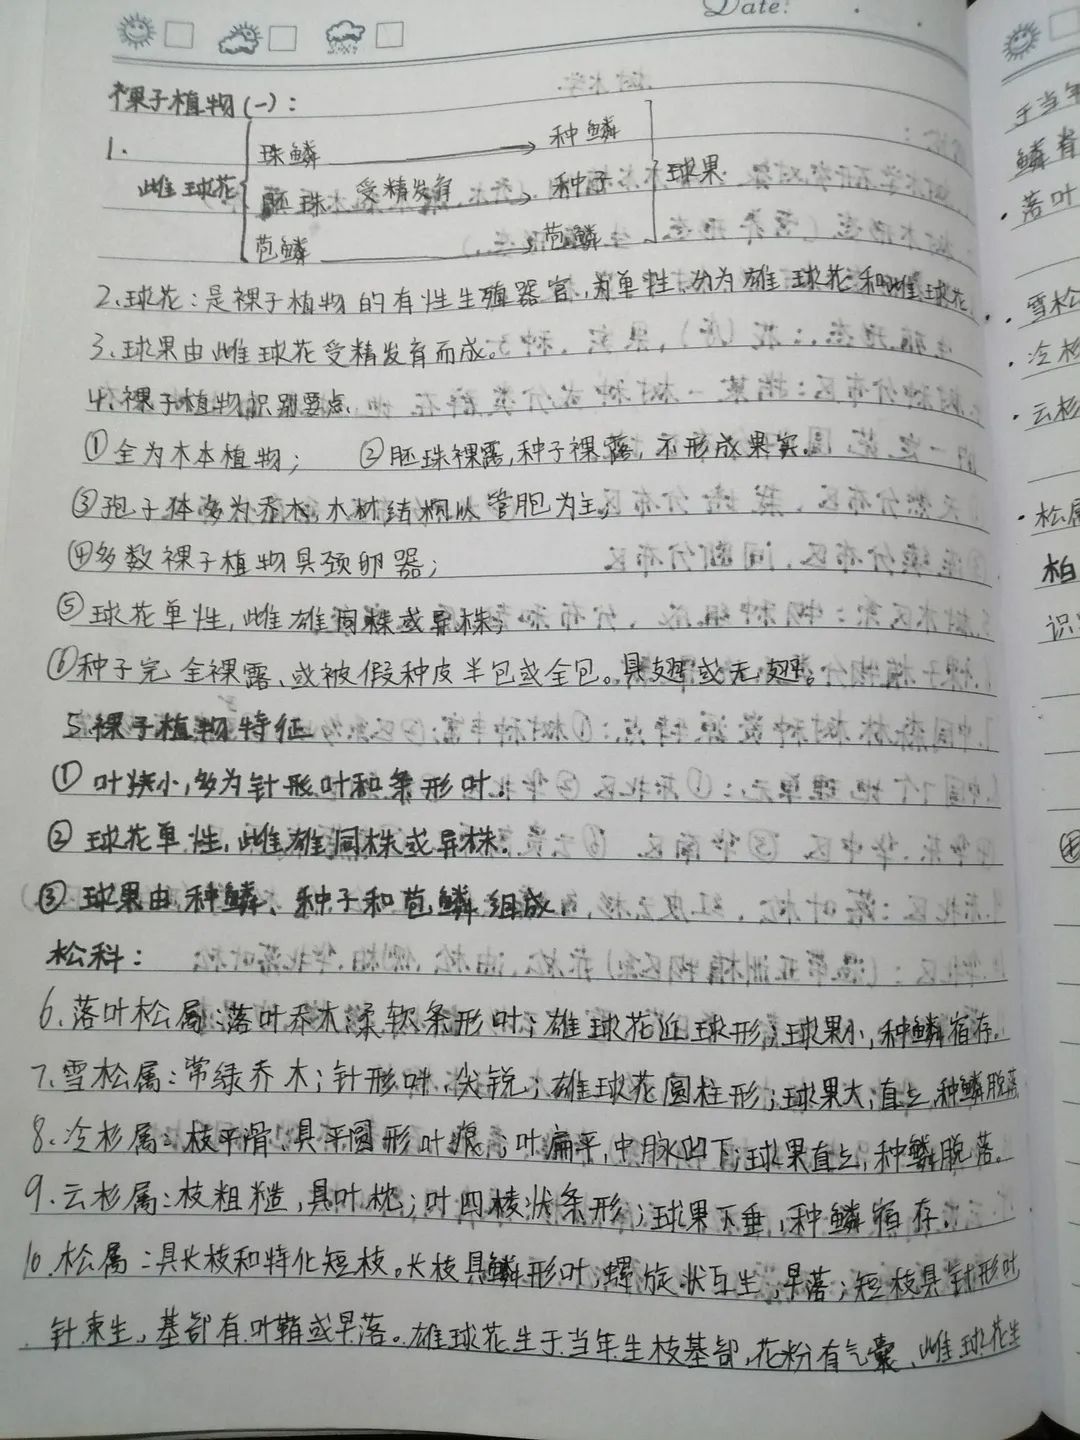 Date:
裸子植物(一):
1.
珠鳞 种鳞
雌球花 胚珠 受精发育 种子 球果
苞鳞 苞鳞
2.球花:是裸子植物的有性生殖器官,为单性,分为雄球花和雌球花.
3.球果由雌球花受精发育而成。
4.裸子植物识别要点
①全为木本植物; ②胚珠裸露,种子裸露,不形成果实.
③孢子体多为乔木,木材结构以管胞为主;
④多数裸子植物具颈卵器;
⑤球花单性,雌雄同株或异株;
⑥种子完全裸露,或被假种皮半包或全包。具翅或无翅。
5.裸子植物特征
①叶狭小,多为针形叶和条形叶.
②球花单性,雌雄同株或异株.
③球果由种鳞、种子和苞鳞组成.
松科:
6.落叶松属:落叶乔木;柔软条形叶;雄球花近球形;球果小,种鳞宿存.
7.雪松属:常绿乔木;针形叶,尖锐;雄球花圆柱形;球果大;直立,种鳞脱落
8.冷杉属:枝平滑,具平圆形叶痕;叶扁平,中脉凹下;球果直立,种鳞脱落.
9.云杉属:枝粗糙,具叶枕;叶四棱状条形;球果下垂,种鳞宿存.
10.松属:具长枝和特化短枝。长枝具鳞形叶,螺旋状互生,早落;短枝具针形叶
针束生,基部有叶鞘或早落。雄球花生于当年生枝基部,花粉有气囊,雌球花生
于当年
鳞脊
·落叶
·雪松
·冷杉
·云杉
·松属
柏
识